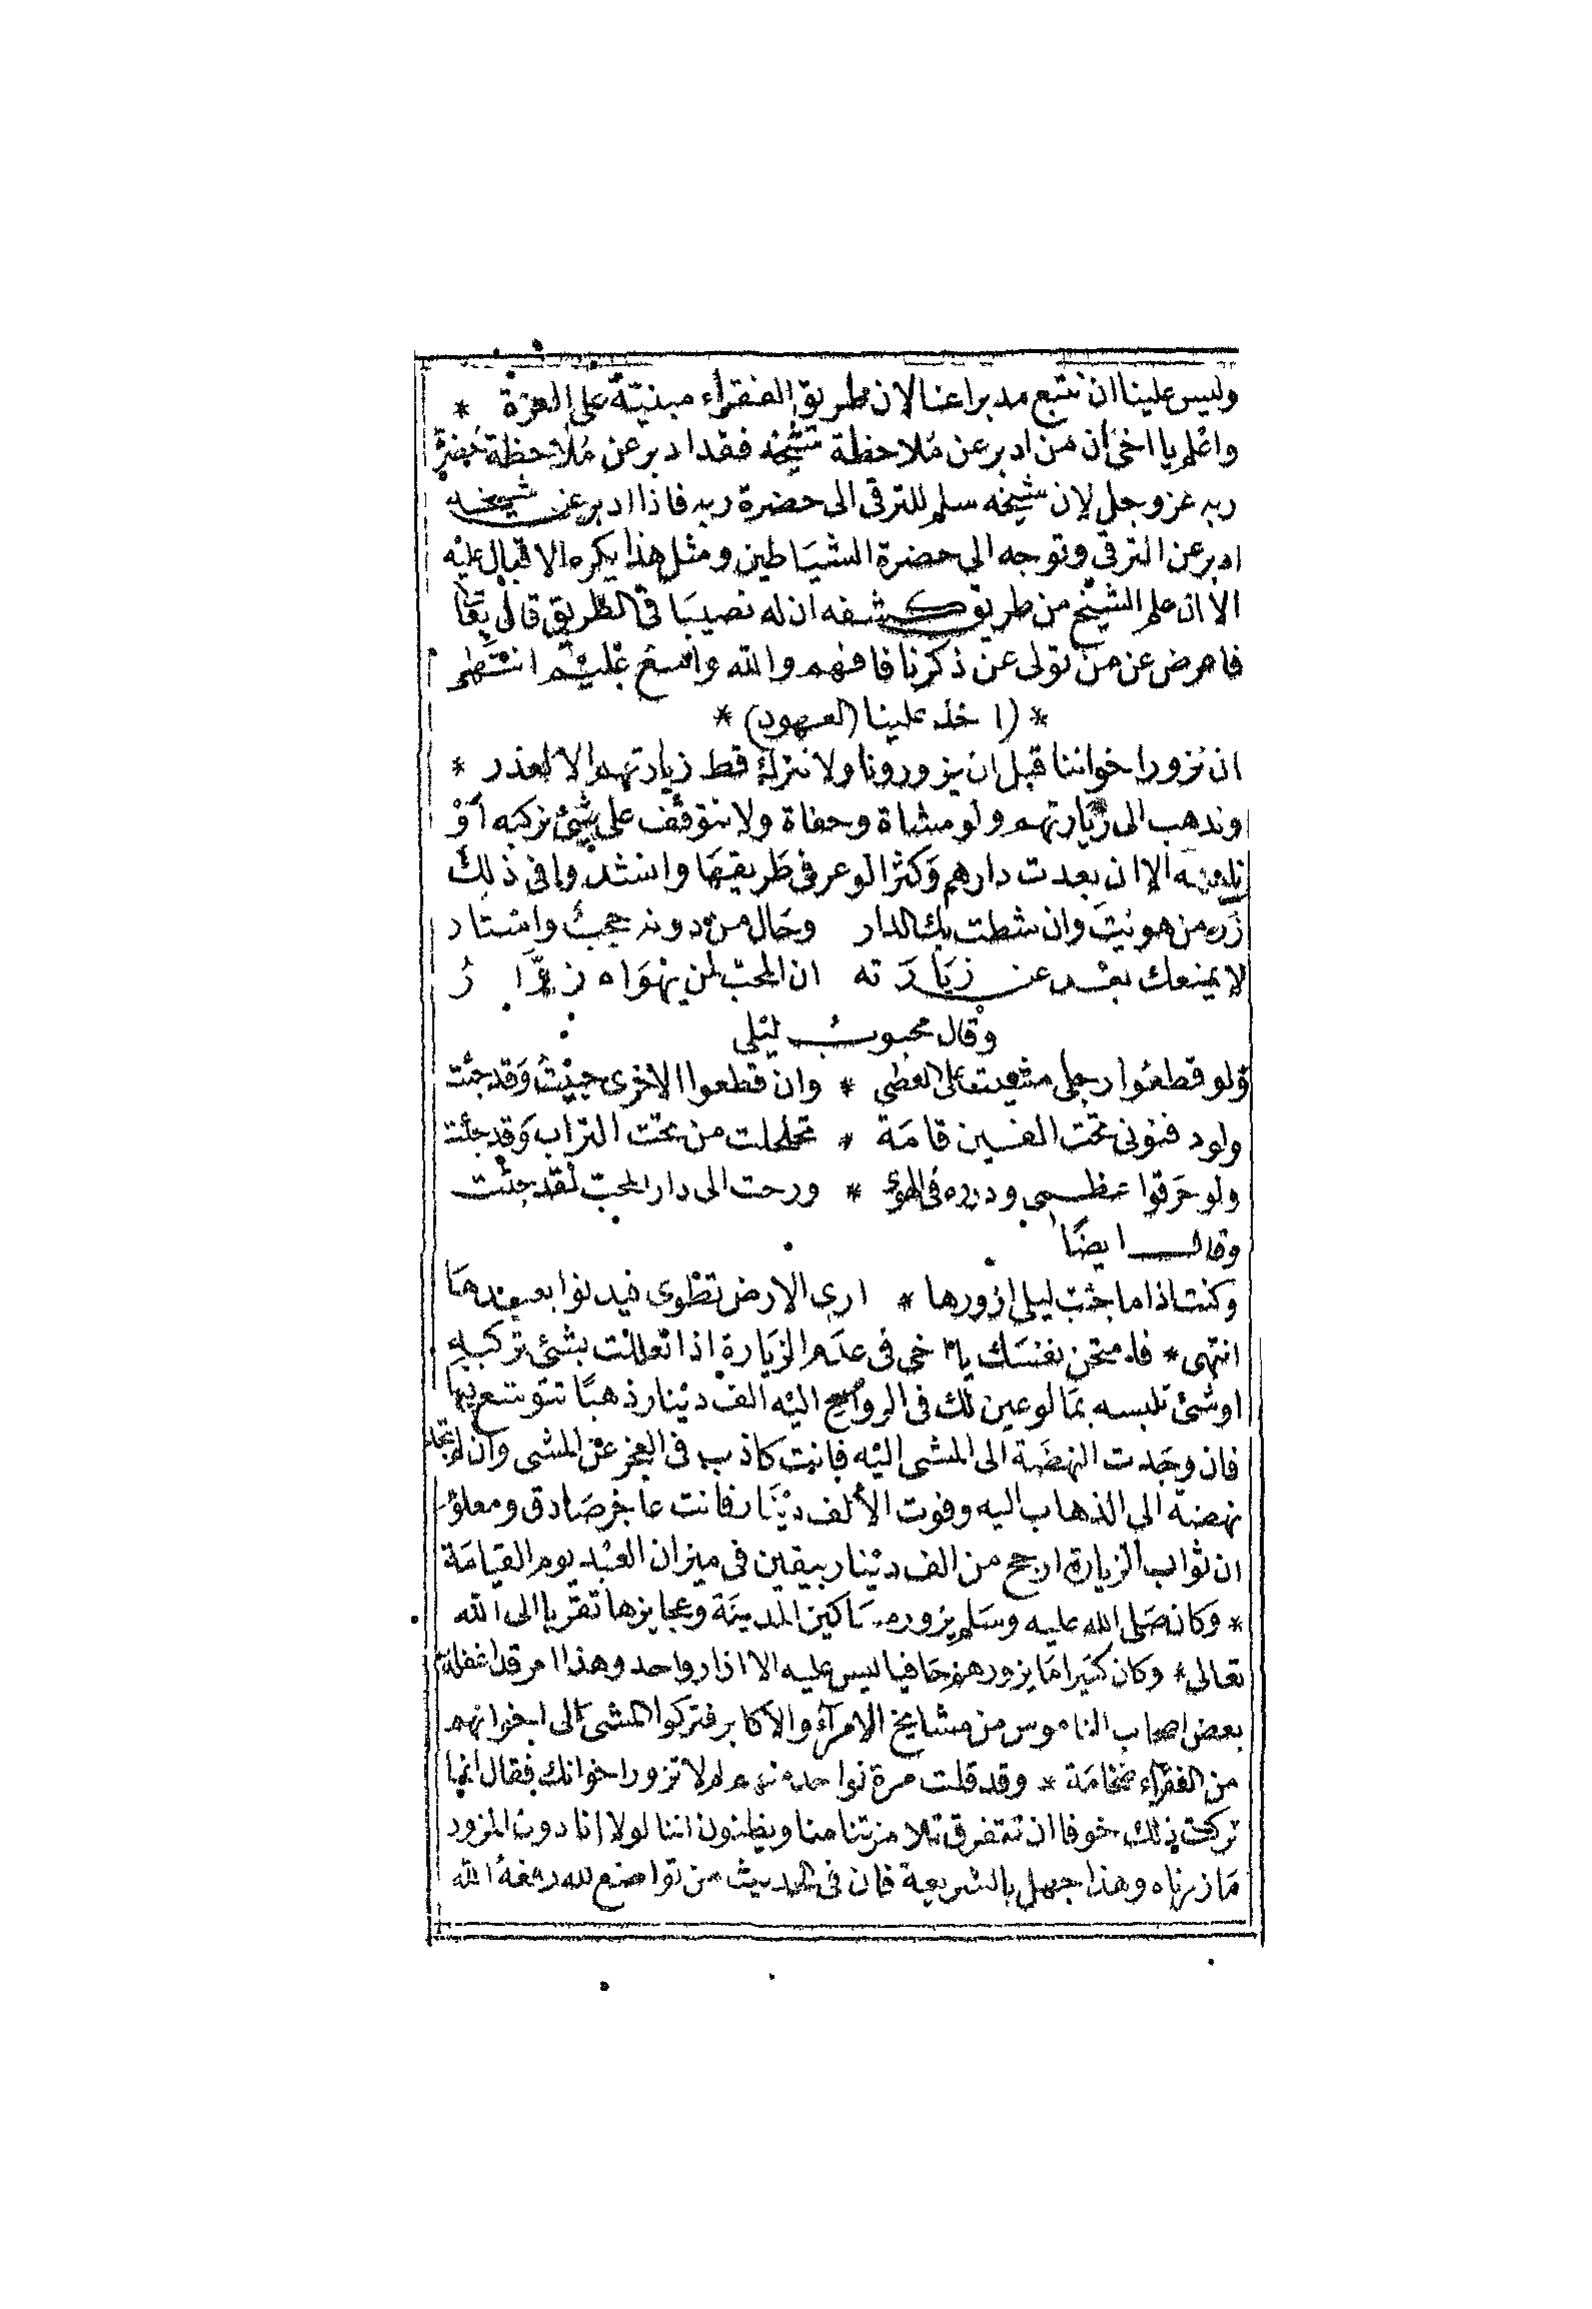 وليس علينا ان نتبع مدبرا عنا لان طريق الفقراء مبنية على العزة *
واعلم يا اخى ان من ادبر عن ملاحظة شيخه فقد ادبر عن ملاحظة حضرة
ربه عز وجل لان شيخه سلم للترقى الى حضرة ربه فاذا ادبر عن شيخه
ادبر عن الترقى وتوجه الى حضرة الشياطين ومثل هذا يكره الاقبال عليه
الا ان علم الشيخ من طريق كشفه ان له نصيبا فى الطريق قال تعا
فاعرض عن من تولى عن ذكرنا فافهم والله واسع عليم انتهى
* (اخذ علينا العهود) *
ان نزور اخواننا قبل ان يزورونا ولا نترك قط زيارتهم الا لعذر *
ونذهب الى زيارتهم ولو مشاة وحفاة ولا نتوقف على شئ نركبه أو
نلبسه الا ان بعدت دارهم وكثر الوعر فى طريقها وانشدوا فى ذلك
زر من هويت وان شطت بك الدار وحال من دونه حجب واستار
لا يمنعك بعد عن زيارته ان المحب لمن يهواه زوار
وقال محبوب ليلى
ولو قطعوا رجلى مشيت على العصى * وان قطعوا الاخرى حبيت وقد جئت
ولو دفنونى تحت الفين قامة * تحلحلت من تحت التراب وقد جئت
ولو حرقوا عظمى وذروه فى الهوى * ورحت الى دار المحب لقد جئت
وقال ايضا
وكنت اذا ما جئت ليلى ازورها * ارى الارض تطوى فيدنوا بعيدها
انتهى * فامتحن نفسك يا اخى فى عدم الزيارة اذا تعللت بشئ تركبه
او شئ تلبسه بما لو عين لك فى الرواح اليه الف دينار ذهبا تتوسع بها
فان وجدت النهضة الى المشى اليه فانت كاذب فى العجز عن المشى وان لم تجد
نهضة الى الذهاب اليه وفوت الألف دينار فانت عاجز صادق ومعلوم
ان ثواب الزيارة ارجح من الف دينار بيقين فى ميزان العبد يوم القيامة
* وكان صلى الله عليه وسلم يزور مساكين المدينة وعجايزها تقربا الى الله
تعالى * وكان كثيرا ما يزورهم حافيا ليس عليه الا ازار واحد وهذا امر قد اغفله
بعض اصحاب الناموس من مشايخ الامراء والاكابر فتركوا المشى الى اخوانهم
من الفقراء فخامة * وقد قلت مرة لواحد منهم لم لا تزور اخوانك فقال انما
تركت ذلك خوفا ان تتفرق تلامذتنا منا ويظنون اننا لولا انا دون المزور
ما زرناه وهذا جهل بالشريعة فان فى الحديث من تواضع لله رفعه الله